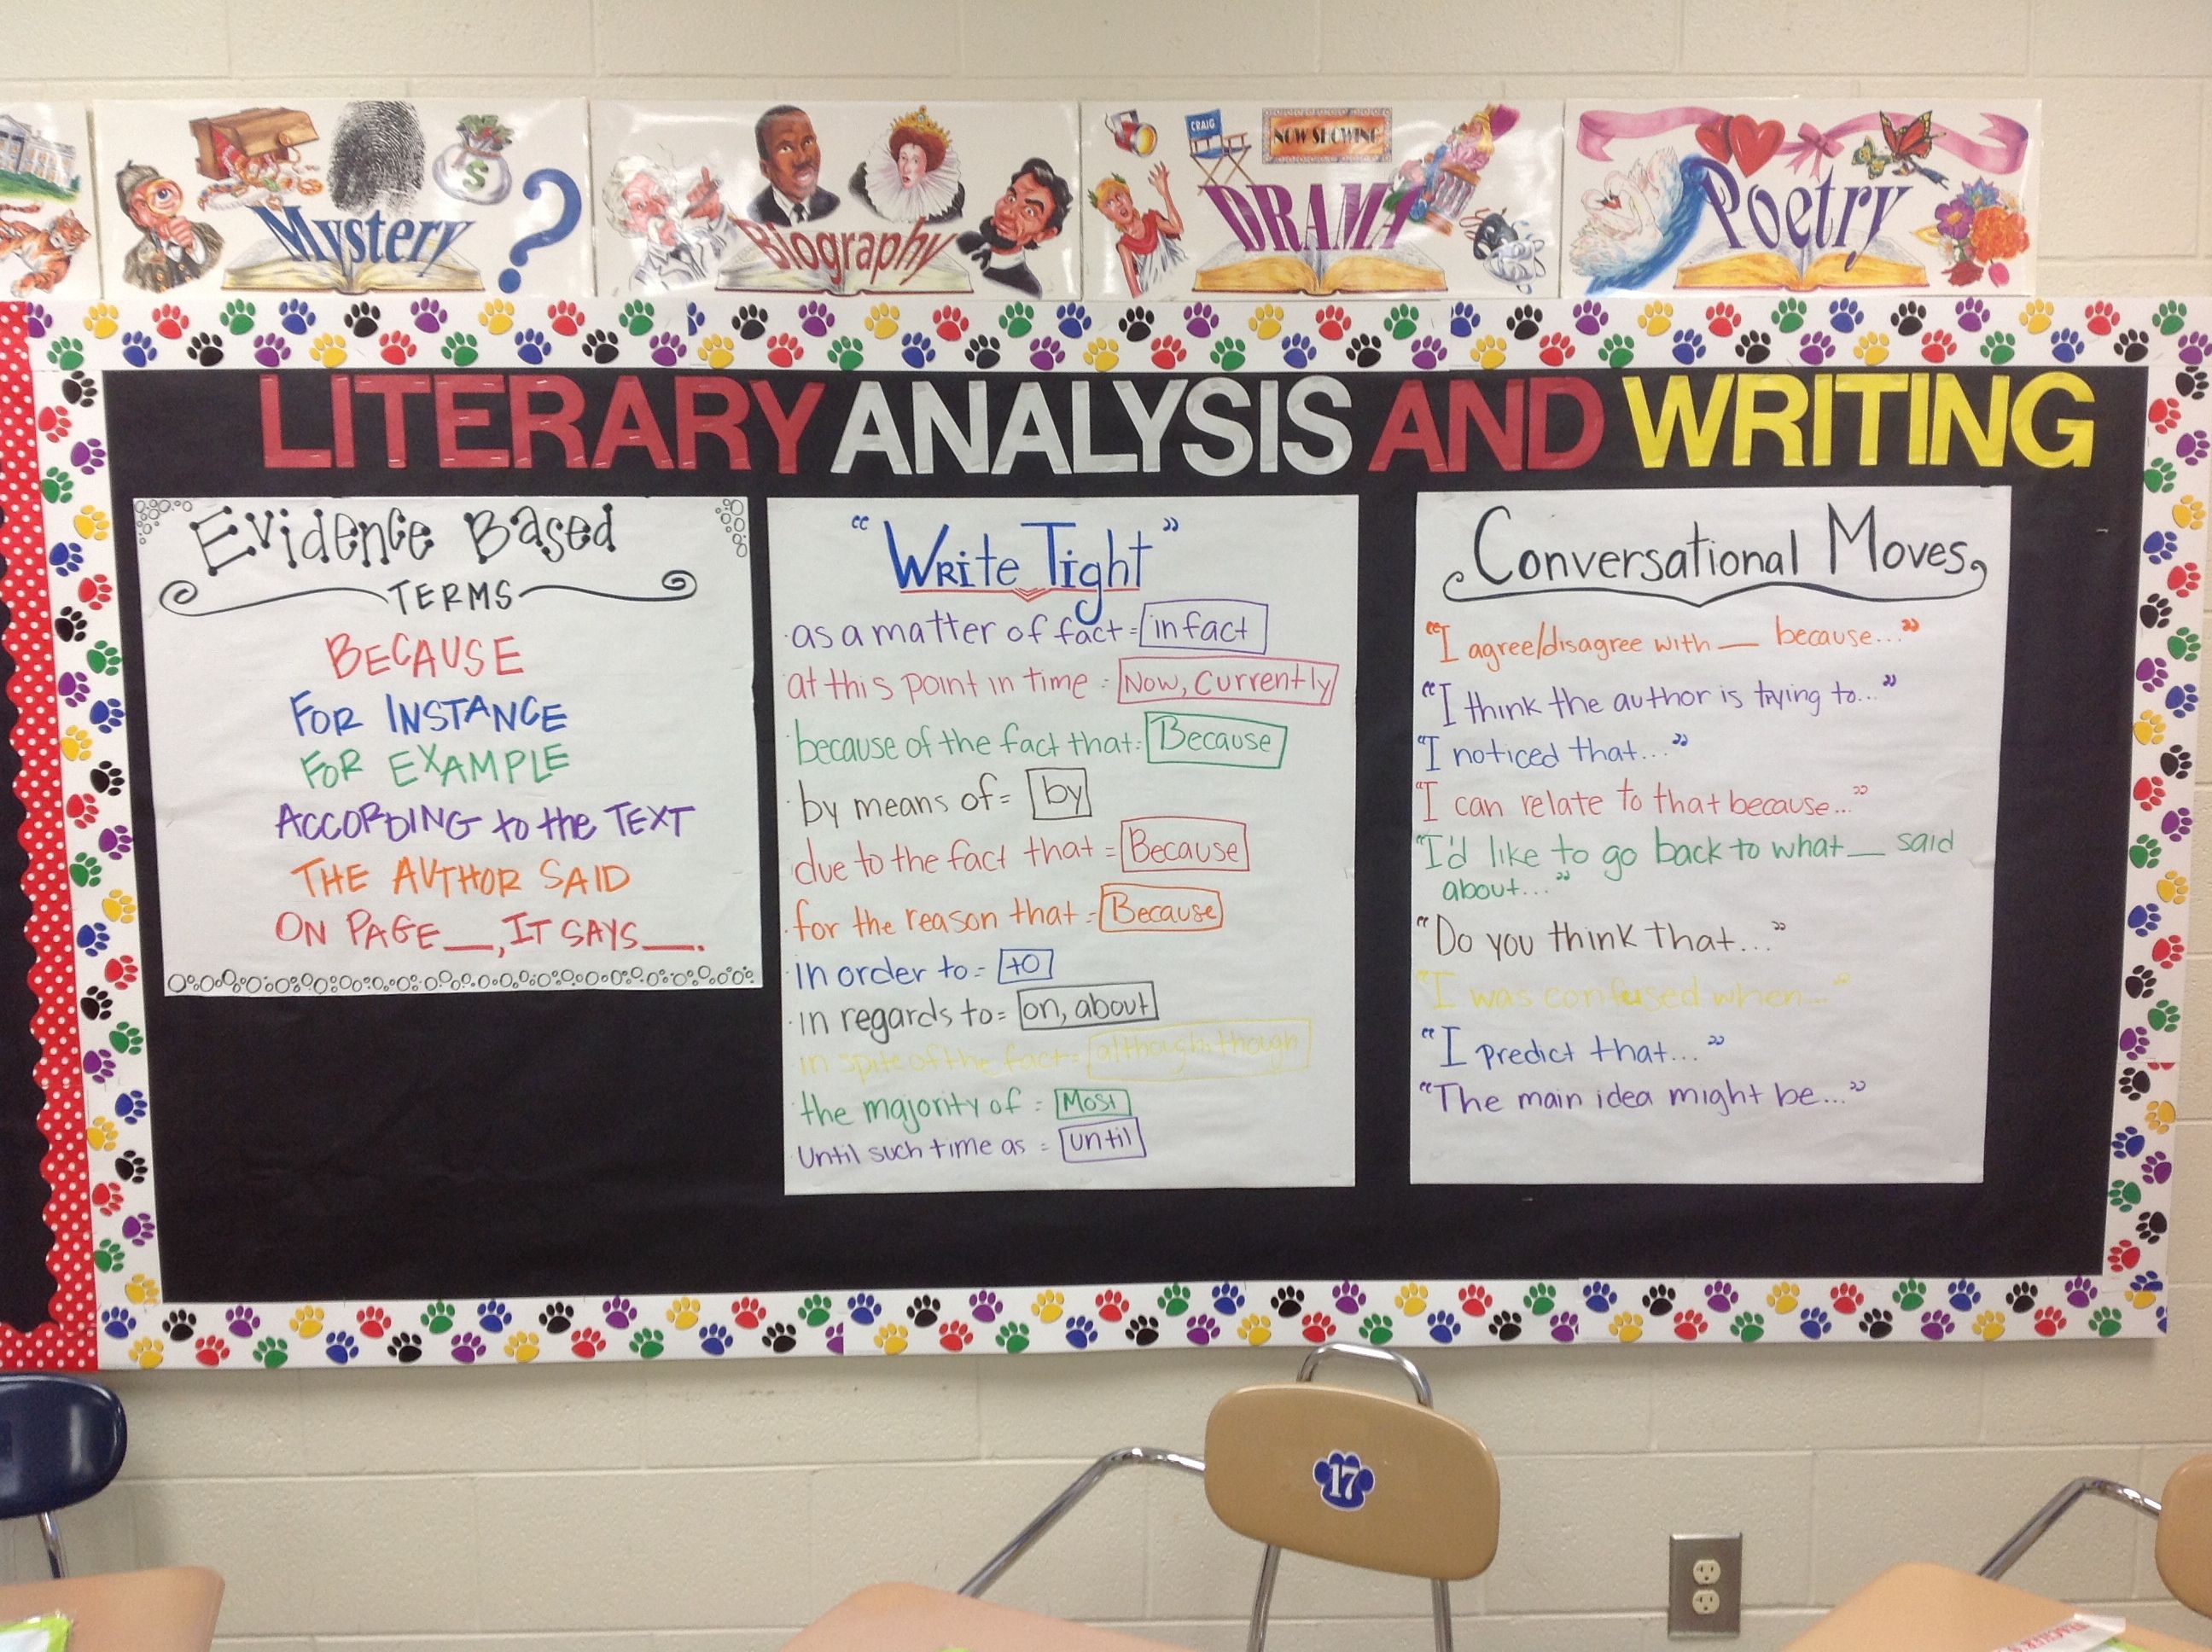 Mystery
Biography
CRAIG
NOW SHOWING
DRAMA
Poetry
LITERARY ANALYSIS AND WRITING
Evidence Based
TERMS
BECAUSE
FOR INSTANCE
FOR EXAMPLE
ACCORDING to the TEXT
THE AUTHOR SAID
ON PAGE__, IT SAYS__.
"Write Tight"
·as a matter of fact = in fact
at this point in time = Now, Currently
·because of the fact that = Because
·by means of = by
due to the fact that = Because
·for the reason that = Because
·in order to = to
·in regards to = on, about
in spite of the fact = although, though
·the majority of = Most
until such time as = until
Conversational Moves
"I agree/disagree with __ because..."
"I think the author is trying to..."
"I noticed that..."
"I can relate to that because..."
"I'd like to go back to what __ said
about..."
"Do you think that..."
"I was confused when..."
"I predict that..."
"The main idea might be..."
17